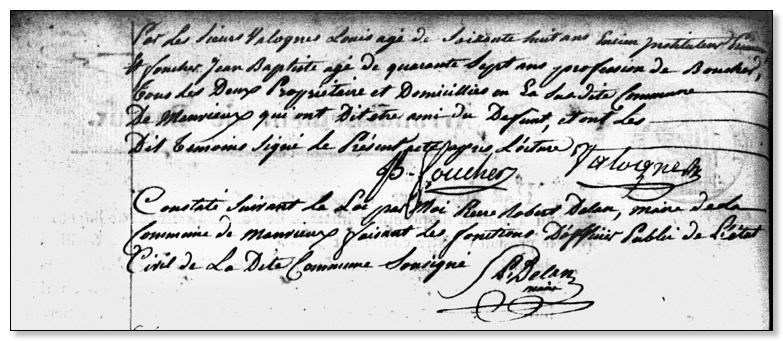 Par Les Sieurs Valognes Louis agé de Soixante huit ans Encien instituteur
& foucher Jean Baptiste agé de quarante Sept ans profession de Boucher,
tous Les Deux Propriétaire et Domiciliés en La Susdite Commune
De Manvieux qui ont Dit être ami du Defunt, et ont Les
Dit temoins Signé le Présent acte apres Lecture
B. foucher Valognes
Constaté Suivant la Loi par Moi Pierre Robert Delan, maire de La
Commune de Manvieux faisant Les fonctions D'officier Public de L'état
Civil de La Dite Commune Soussigné
P. Delan
maire